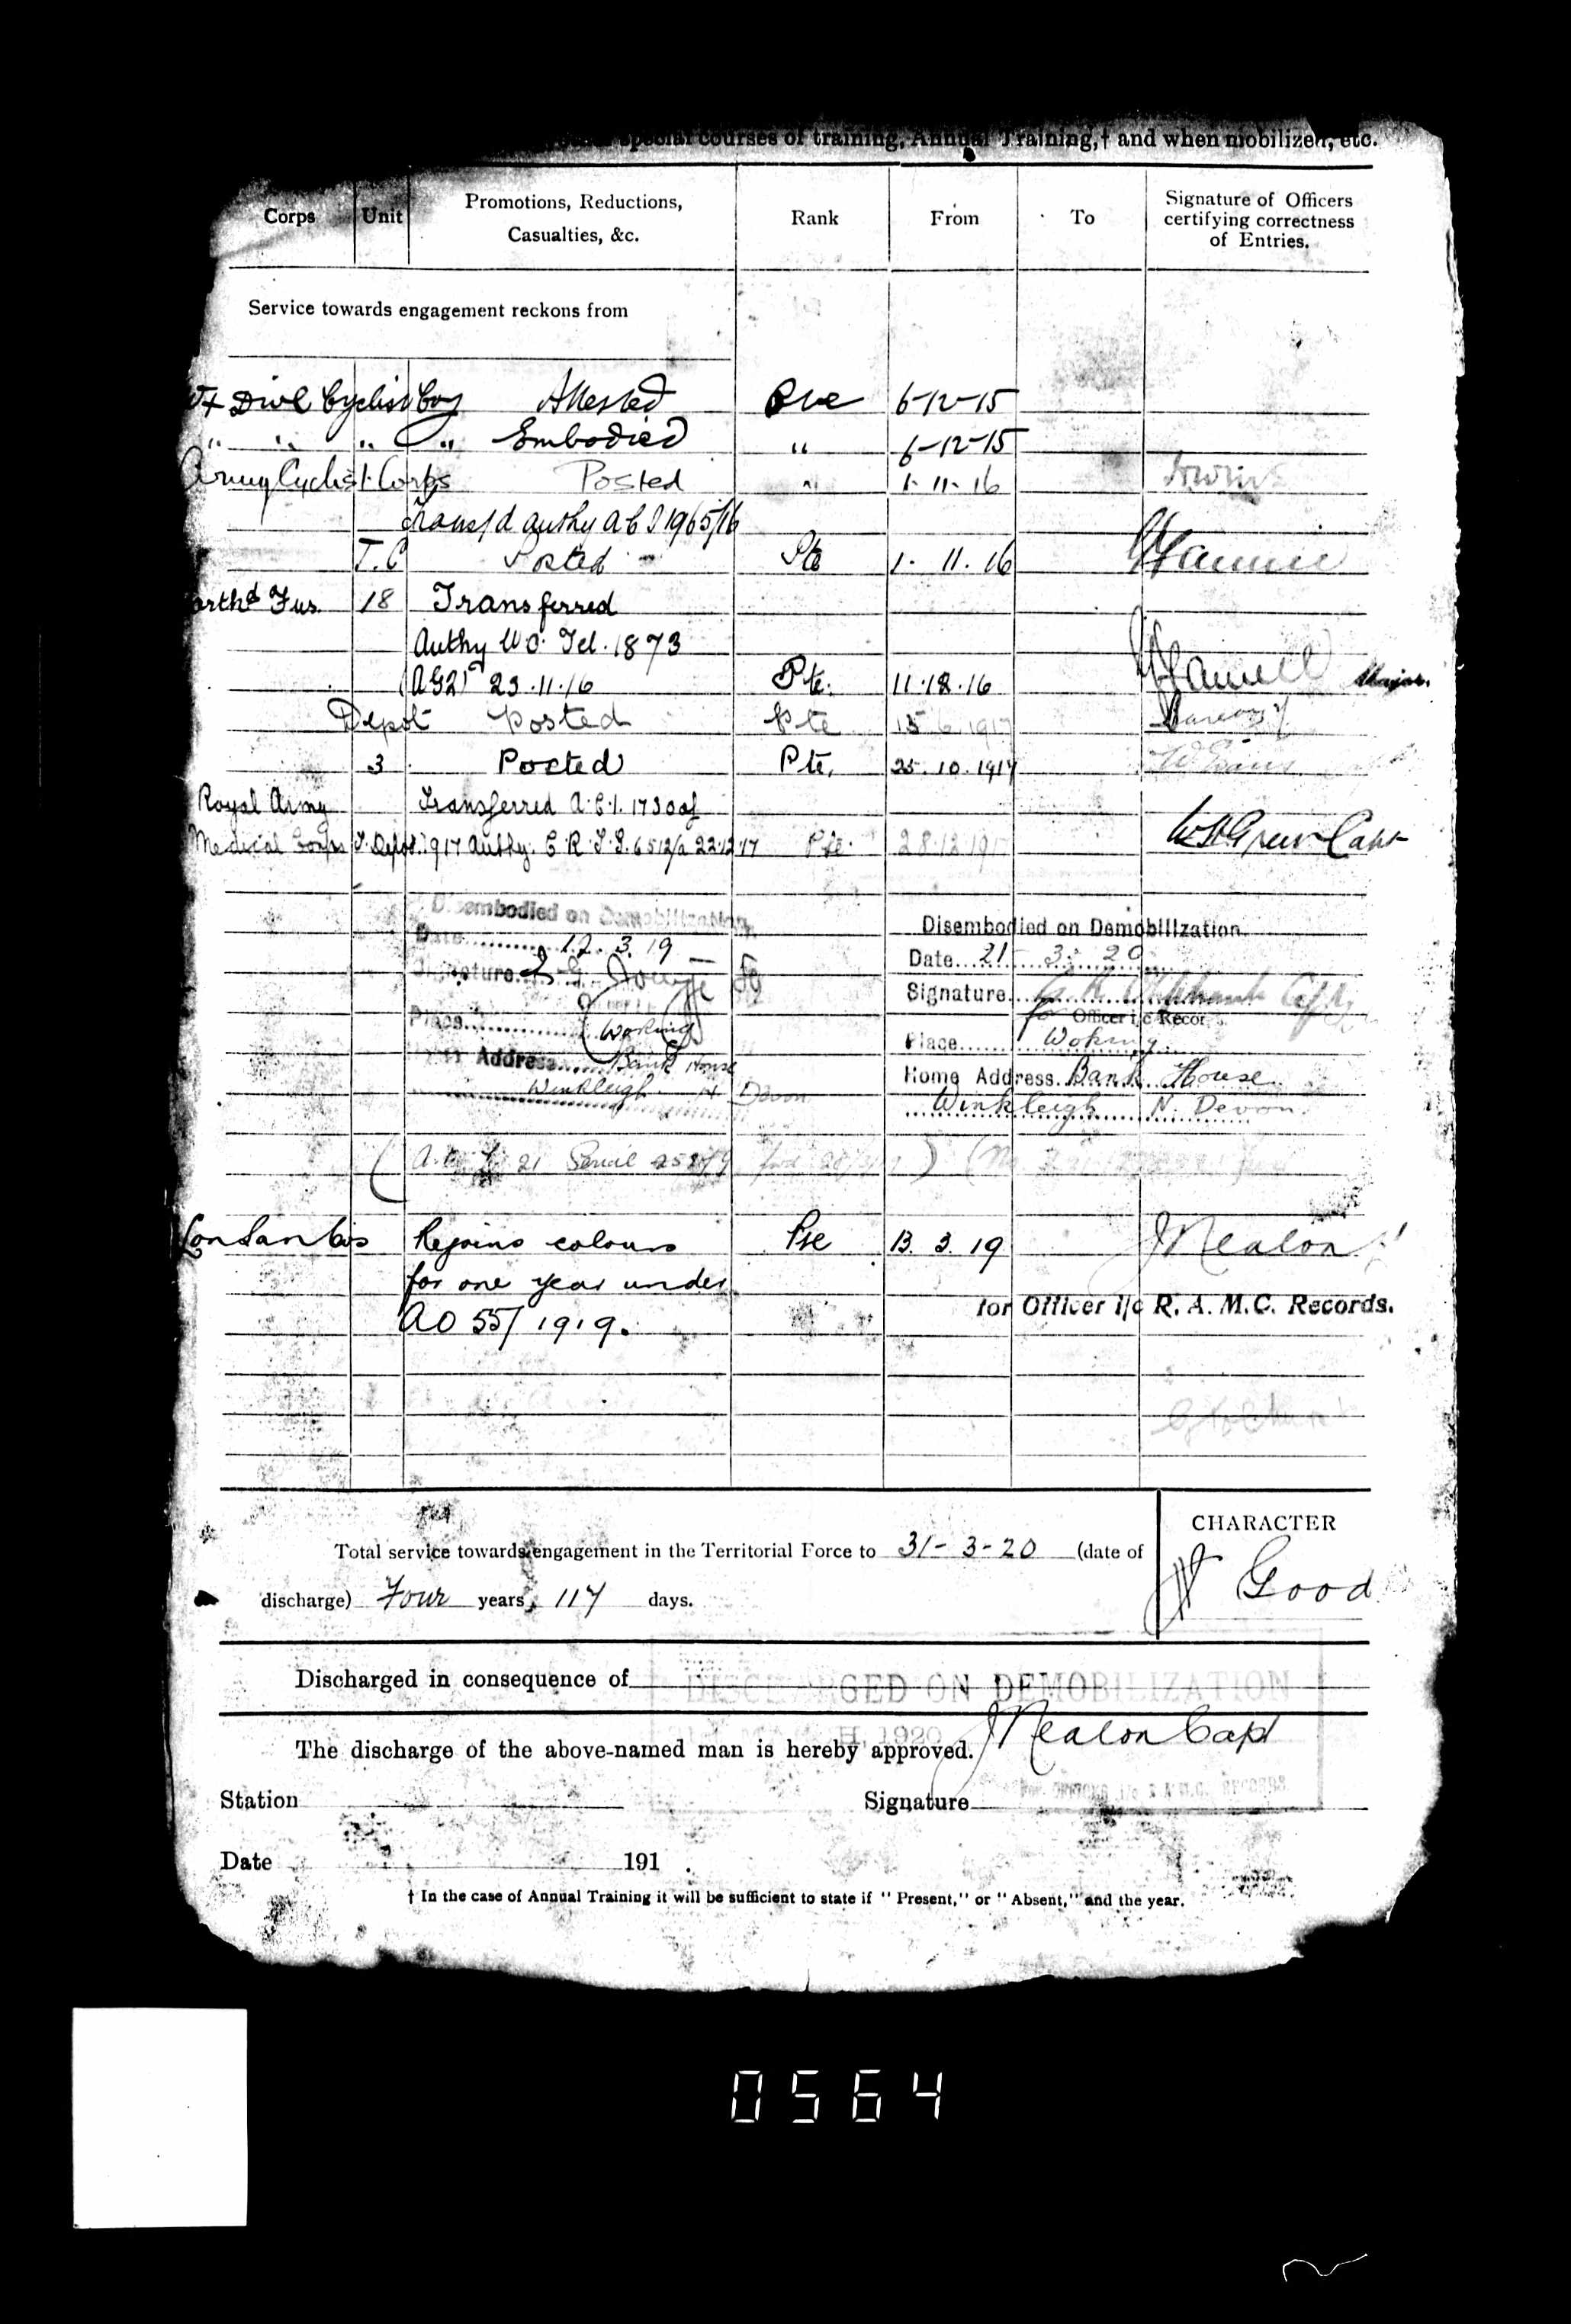 special courses of training, Annual Training,† and when mobilized, etc.
Corps Unit Promotions, Reductions, Casualties, &c. Rank From To Signature of Officers certifying correctness of Entries.
Service towards engagement reckons from
Divl Cyclist Coy Attested Pte 6-12-15
" " " " Embodied " 6-12-15
Army Cyclist Corps Posted " 1-11-16
Transf'd authy A C I 1965/16
T.C Posted Pte 1. 11. 16
orthd Fus. 18 Transferred
Authy W O. Tel. 1873
(AG2) 23.11.16 Pte. 11.12.16 Major.
Depot Posted Pte 15 6 1917
3 Posted Pte. 25. 10. 1917
Royal Army Transferred A.C.I. 1730 of
Medical Corps T. Depot. 1917 Authy. C. R. 6512/a 22.12.17 Pte. 28.12.191 Capt
Disembodied on Demobilization
Date 12. 3. 19
Signature
Place Woking
Address Bank House
Winkleigh N Devon
Disembodied on Demobilization.
Date 21 3. 20
Signature
for Officer i/c Recor
Place Woking
Home Address. Bank House
Winkleigh N. Devon.
21 Serial
Lon San Cos Rejoins colours Pte 13. 3. 19 J Nealon
for one year under
AO 55/1919.
for Officer i/c R. A. M. C. Records.
Total service towards engagement in the Territorial Force to 31-3-20 (date of
discharge) Four years, 117 days.
CHARACTER
Good
Discharged in consequence of DISCHARGED ON DEMOBILIZATION
H, 1920
The discharge of the above-named man is hereby approved. J Nealon Capt
Station Signature
RECORDS.
Date 191 .
† In the case of Annual Training it will be sufficient to state if "Present," or "Absent," and the year.
0564